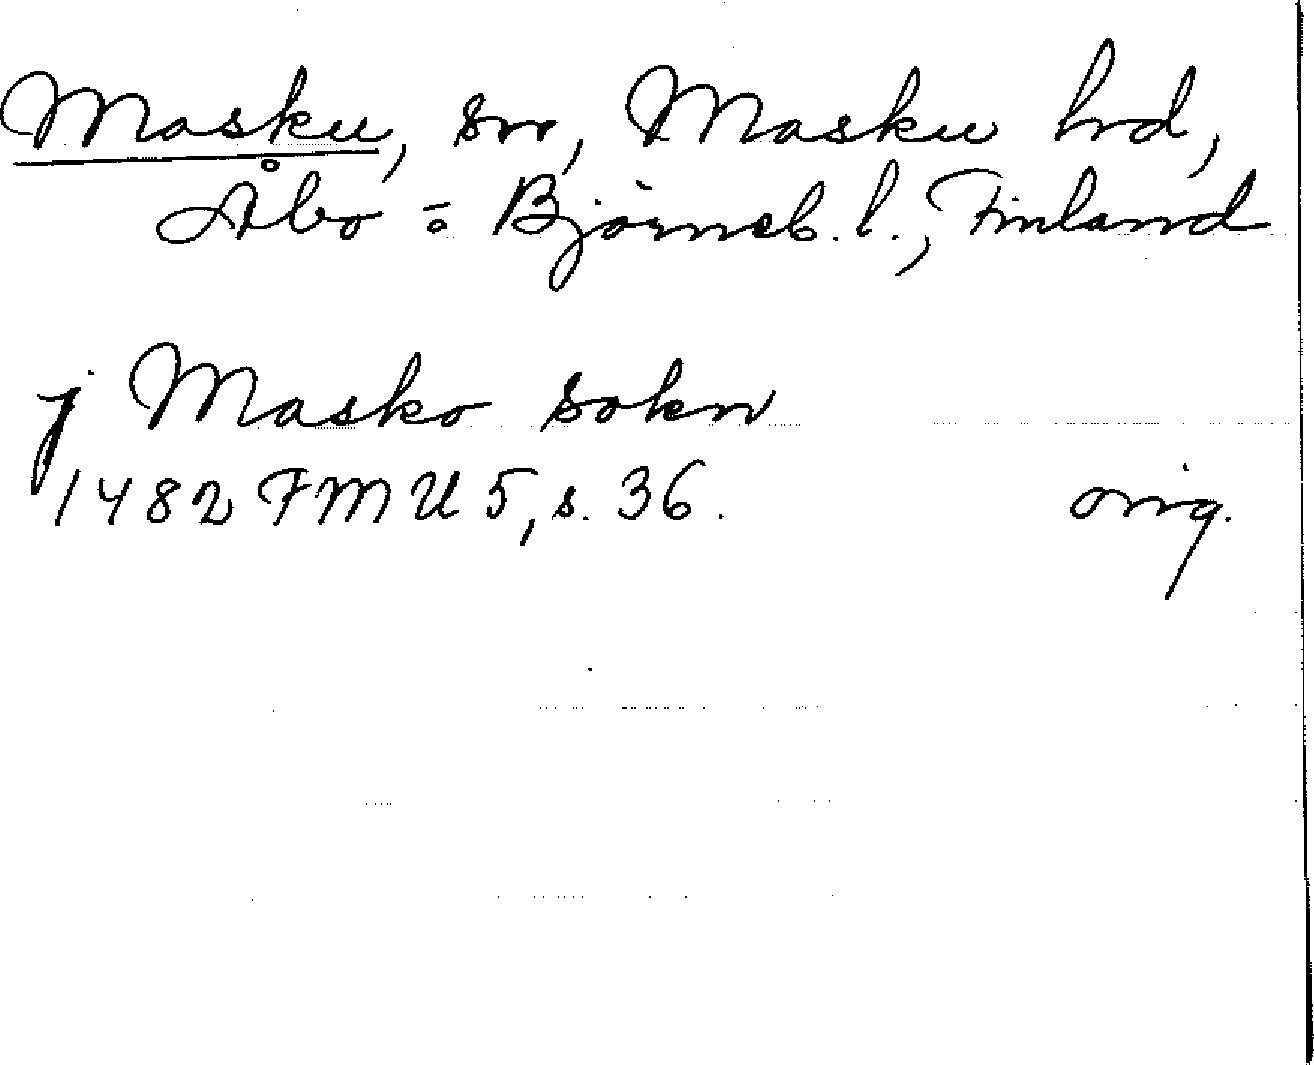 Masku, sn, Masku hd,
Åbo = Björneb. l., Finland
j Masko sokn
1482 FMU 5, s. 36. orig.